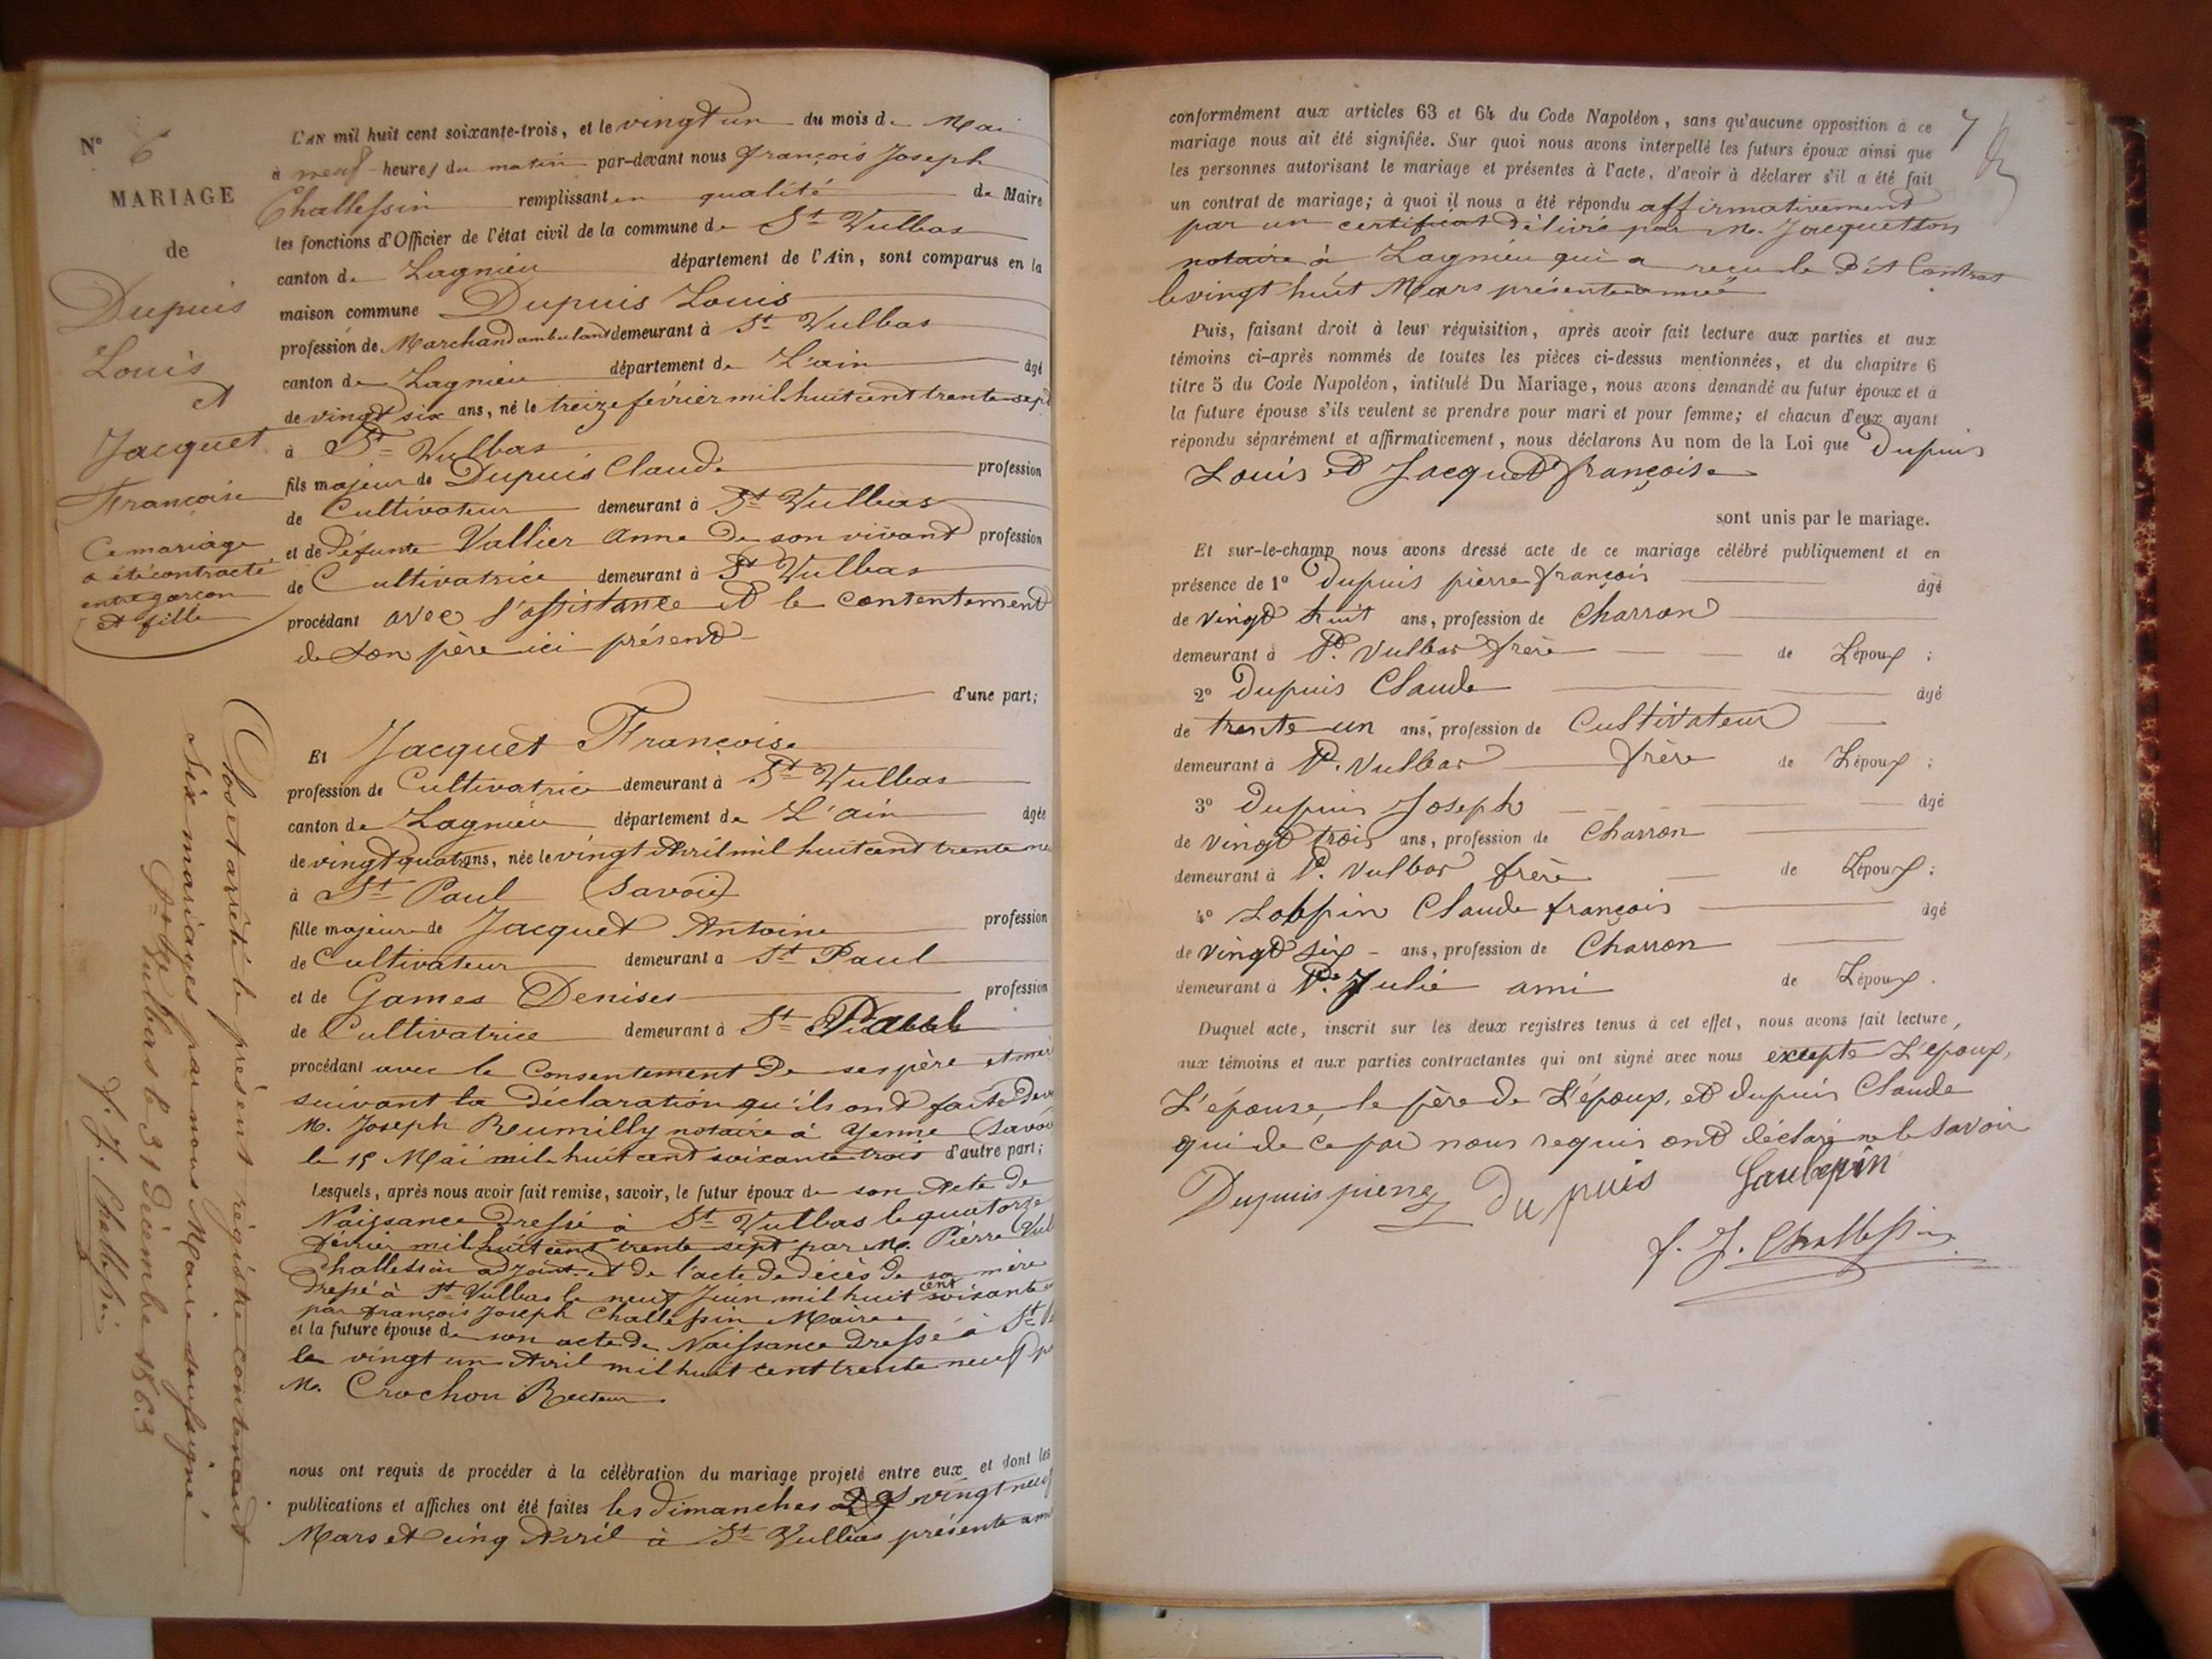 N° 6
MARIAGE
de
Dupuis
Louis
et
Jacquet
Françoise
Ce mariage
a été contracté
entre garçon
et fille
L'AN mil huit cent soixante-trois, et le vingt un du mois de Mai
à neuf heures du matin par-devant nous françois Joseph
Challessin remplissant en qualité de Maire
les fonctions d'Officier de l'état civil de la commune de St Vulbas
canton de Lagnieu département de l'Ain, sont comparus en la
maison commune Dupuis Louis
profession de Marchand ambuland demeurant à St Vulbas
canton de Lagnieu département de L'ain âgé
de vingt six ans, né le treize février mil huit cent trente sept
à St Vulbas
fils majeur de Dupuis Claude profession
de Cultivateur demeurant à St Vulbas
et de Défunte Vallier Anne De son vivant profession
de Cultivatrice demeurant à St Vulbas
procédant avec l'assistance et le contentement
de son père ici présent
d'une part;
Et Jacquet Françoise
profession de Cultivatrice demeurant à St Vulbas
canton de Lagnieu département de L'ain âgée
de vingt quatre ans, née le vingt Avril mil huit cent trente ne
à St Paul (Savoie)
fille majeure de Jacquet Antoine profession
de Cultivateur demeurant a St Paul
et de Games Denises profession
de Cultivatrice demeurant à St Paul
procédant avec le Consentement De ses père et mère
suivant la Déclaration qu'ils ont faite Dev
M. Joseph Reumilly notaire à Yenne (Savoi
le 15 Mai mil huit cent soixante trois d'autre part;
Lesquels, après nous avoir fait remise, savoir, le futur époux de son Acte de
Naissance Dressé à St Vulbas le quatorze
février mil huit cent trente sept par M. Pierre Vul
Challessin adjoint et de l'acte de décès de sa mère
Dressé à St Vulbas le neuf Juin mil huit cent soixante
par françois Joseph Challessin Maire
et la future épouse de son acte de Naissance Dressé à St
le vingt un Avril mil huit cent trente neuf p
M. Crochon Recteur.
nous ont requis de procéder à la célébration du mariage projeté entre eux et dont les
publications et affiches ont été faites les Dimanches vingt neuf
Mars et cinq Avril à St Vulbas présente ann
Clos et arrêté le présent régistre contenant
Six mariages par nous Maire soussigné
St Vulbas le 31 Décembre 1863
f. J. Challessin
7
conformément aux articles 63 et 64 du Code Napoléon, sans qu'aucune opposition à ce
mariage nous ait été signifiée. Sur quoi nous avons interpellé les futurs époux ainsi que
les personnes autorisant le mariage et présentes à l'acte, d'avoir à déclarer s'il a été fait
un contrat de mariage; à quoi il nous a été répondu affirmativement
par un certificat Délivré par M. Jacquetton
notaire à Lagnieu qui a reçu le Dit Contrat
le vingt huit Mars présente année
Puis, faisant droit à leur réquisition, après avoir fait lecture aux parties et aux
témoins ci-après nommés de toutes les pièces ci-dessus mentionnées, et du chapitre 6
titre 5 du Code Napoléon, intitulé Du Mariage, nous avons demandé au futur époux et à
la future épouse s'ils veulent se prendre pour mari et pour femme; et chacun d'eux ayant
répondu séparément et affirmativement, nous déclarons Au nom de la Loi que Dupuis
Louis et Jacquet françoise
sont unis par le mariage.
Et sur-le-champ nous avons dressé acte de ce mariage célébré publiquement et en
présence de 1° Dupuis pierre françois âgé
de vingt huit ans, profession de Charron
demeurant à St. Vulbas frère de L'époux ;
2° Dupuis Claude âgé
de trente un ans, profession de Cultivateur
demeurant à St. Vulbas frère de L'époux ;
3° Dupuis Joseph âgé
de vingt trois ans, profession de Charron
demeurant à St. Vulbas frère de L'époux ;
4° Lobpin Claude françois âgé
de vingt six ans, profession de Charron
demeurant à Ste Julie ami de L'époux .
Duquel acte, inscrit sur les deux registres tenus à cet effet, nous avons fait lecture,
aux témoins et aux parties contractantes qui ont signé avec nous excepte L'epoux,
L'épouse, le père De L'époux, et dupuis Claude
qui de ce par nous requis ont déclaré ne le savoir
Dupuis pierre Dupuis Gaubepin
f. J. Challessin